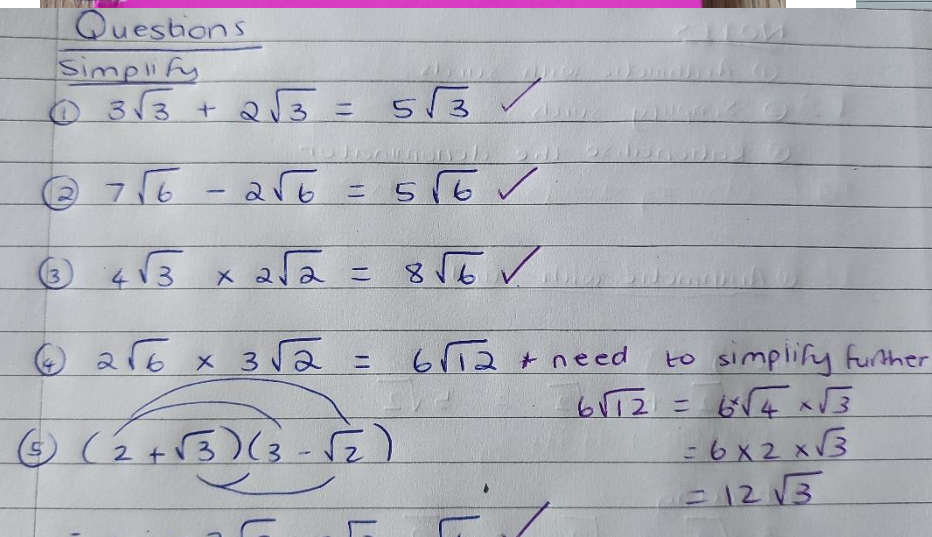 Questions
Simplify
① 3√3 + 2√3 = 5√3 ✓
② 7√6 - 2√6 = 5√6 ✓
③ 4√3 × 2√2 = 8√6 ✓
④ 2√6 × 3√2 = 6√12 * need to simplify further
6√12 = 6×√4 × √3
⑤ (2 + √3)(3 - √2)
= 6 × 2 × √3
= 12√3